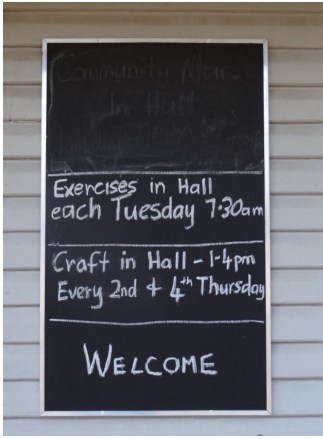 Community
In Hall
Exercises in Hall
each Tuesday 7:30am
Craft in Hall - 1-4pm
Every 2nd & 4th Thursday
WELCOME